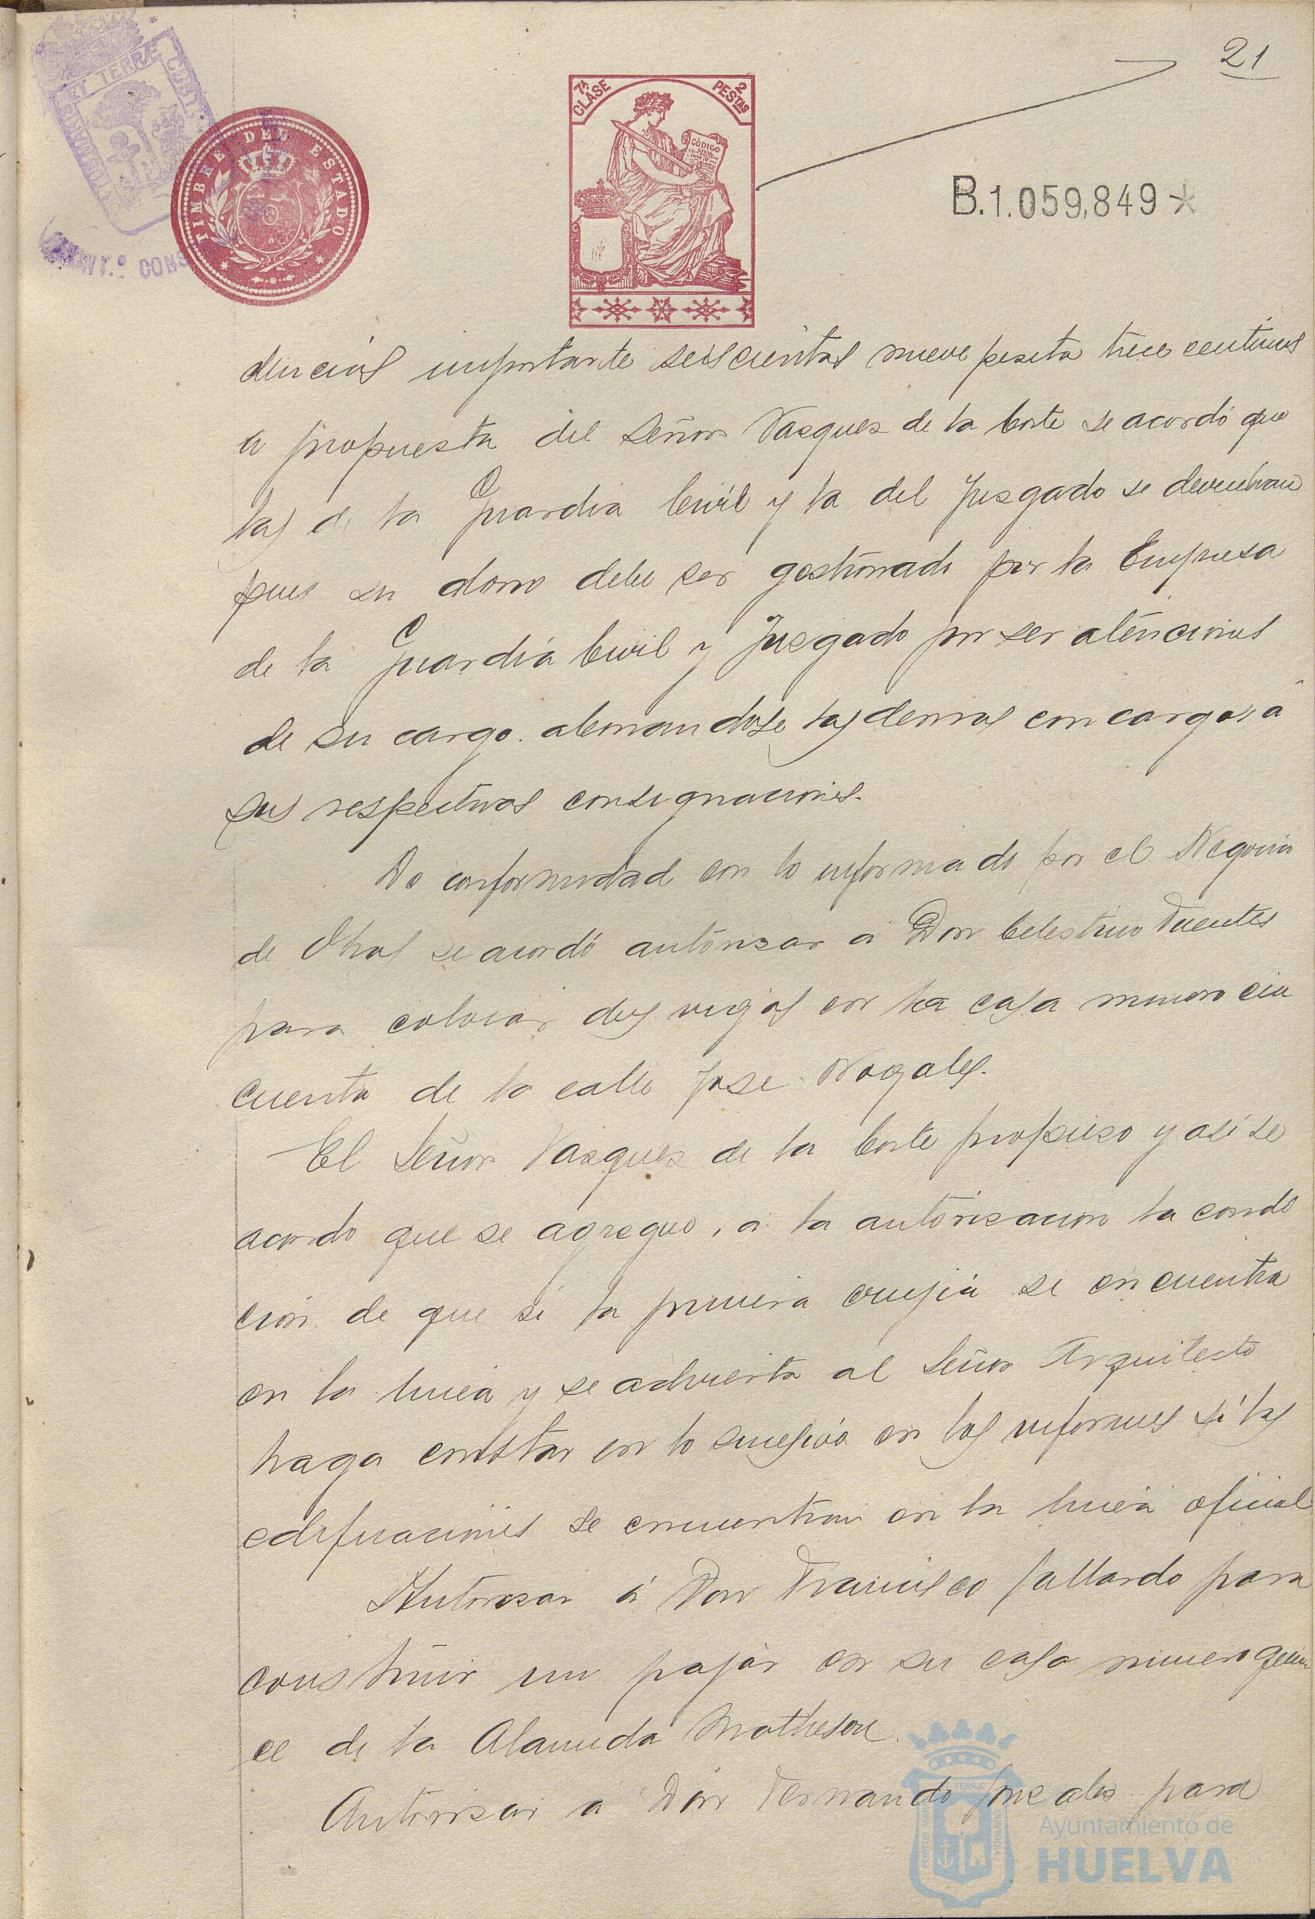 21
7ª CLASE
2 PESTAS
CÓDIGO
TIMBRE DEL ESTADO
AYUNT.º CONS
B.1.059,849*
dencias importante seiscientas nueve peseta trece centimos
a propuesta del Señor Vasques de la Corte se acordó que
las de la Guardia Civil y la del Jusgado se devuelvan
pues su abono debe ser gestionado por la Empresa
de la Guardia Civil y Jusgado por ser aténciones
de su cargo. abonandose las demas con cargo, á
sus respectivas consignaciones.
De conformidad con lo informado por el Negocia
de Obras se acordó autórisar a Don Celestino Fuentes
para colocar dos vigas en la casa numero cin
cuenta de la calle Jose Nogales.
El Señor Vasques de la Corte propuso y asi se
acordo que se agregue, a la autorisacion la condi
ción de que si la primera crujia se encuentra
en la linea y se advierta al Señor Arquitecto
haga constar en lo sucesivo en los informes si las
edificaciones se encuentran en la linea oficial
Autorisar á Don Francisco Gallardo para
construir un pajar en su casa numero quin
ce de la Alameda Matheson.
Autorisar a Don Fernando Gonzales para
Ayuntamiento de
HUELVA